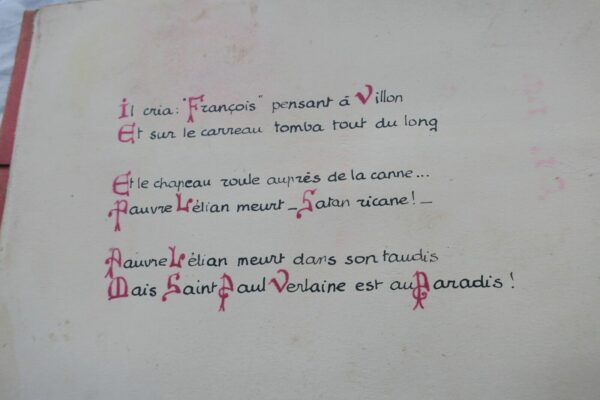 Il cria: "François" pensant à Villon
Et sur le carreau tomba tout du long
Et le chapeau roule auprès de la canne...
Pauvre Lélian meurt _ Satan ricane! _
Pauvre Lélian meurt dans son taudis
Mais Saint Paul Verlaine est au Paradis!